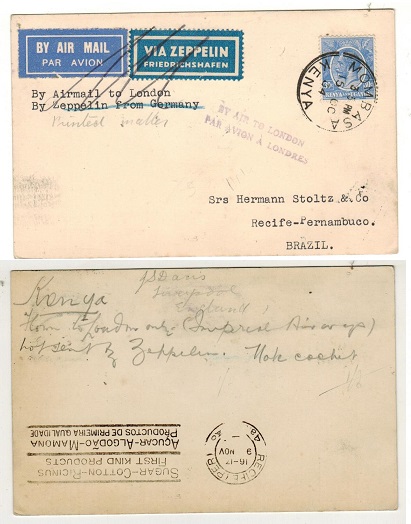 BY AIR MAIL
PAR AVION
VIA ZEPPELIN
FRIEDRICHSHAFEN
MOMBASA
KENYA
KENYA
By Airmail to London
By Zeppelin from Germany
Printed matter
BY AIR TO LONDON
PAR AVION A LONDRES
Srs Hermann Stoltz & Co
Recife-Pernambuco.
BRAZIL.
Davis
Liverpool
England
Kenya
flown to London only (Imperial Airways)
not sent by Zeppelin. Note cachet
SUGAR-COTTON-RICINUS
FIRST KIND PRODUCTS
AÇUCAR-ALGODÃO-MAMONA
PRODUCTOS DE PRIMEIRA QUALIDADE
RECIFE (PER)
16-17
9 NOV